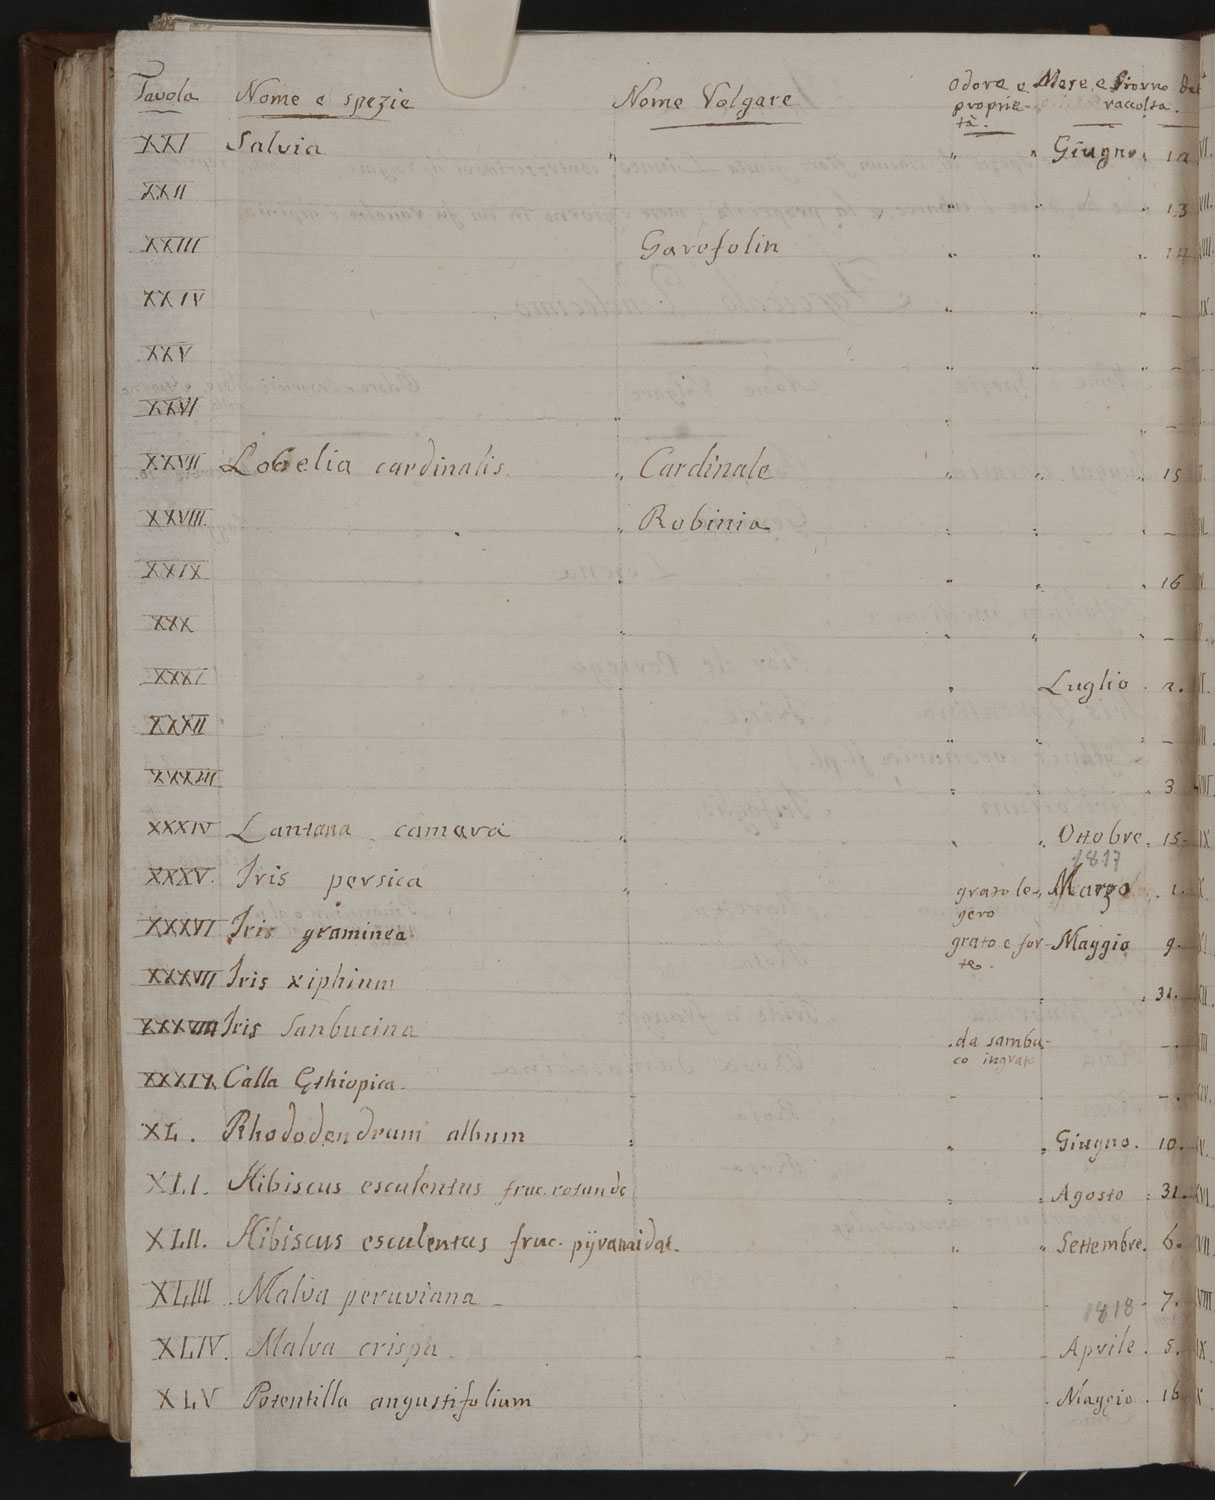 Tavola Nome e spezie Nome Volgare Odore e proprie-tà. Mese e Giorno raccolta.
XXI Salvia " " " Giugno. 12
XXII " " " 13
XXIII Garofolin " " " 14
XXIV " " " –
XXV " " " –
XXVI " " " –
XXVII Lobelia cardinalis. " Cardinale " " " 15
XXVIII . " Robinia " " " –
XXIX " " " " 16
XXX " " " " –
XXXI " " Luglio . 2.
XXXII " " " " –
XXXIII " " . 3
XXXIV Lantana camara " " " Ottobre. 15.
1817
XXXV. Iris persica " grato leg-gero Marzo . 1.
XXXVI Iris graminea. grato e for-te. Maggio 9.
XXXVII Iris xiphium " . 31.
XXXVIII Iris Sanbucina . da sambu-co ingrato –
XXXIX Calla Ethiopica - - - –
XL. Rhododendrum album " " " Giugno. 10.
XLI. Hibiscus esculentus fruc. rotundo " " Agosto . 31.
XLII. Hibiscus esculentus fruc. pÿramidat. " " Settembre. 6.
XLIII Malva peruviana - - - 7.
1818
XLIV. Malva crispa - - - Aprile . 5.
XLV Potentilla angustifolium . . Maggio . 16